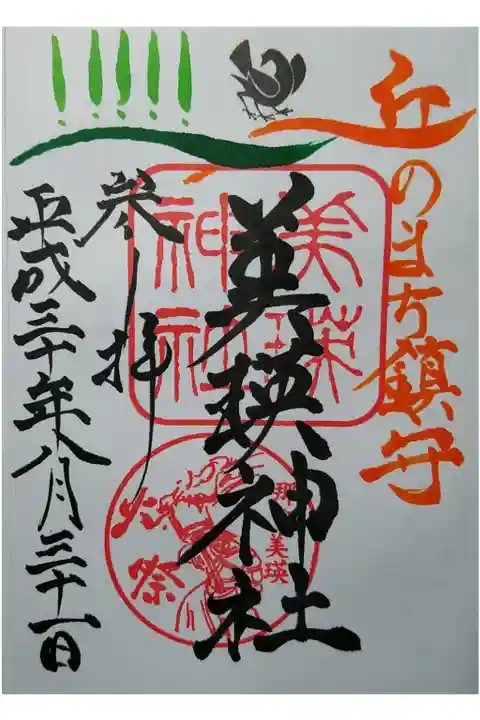 丘のまち鎮守
美瑛神社
美瑛
神社
那
美瑛
火祭
参拝
平成三十年八月三十一日